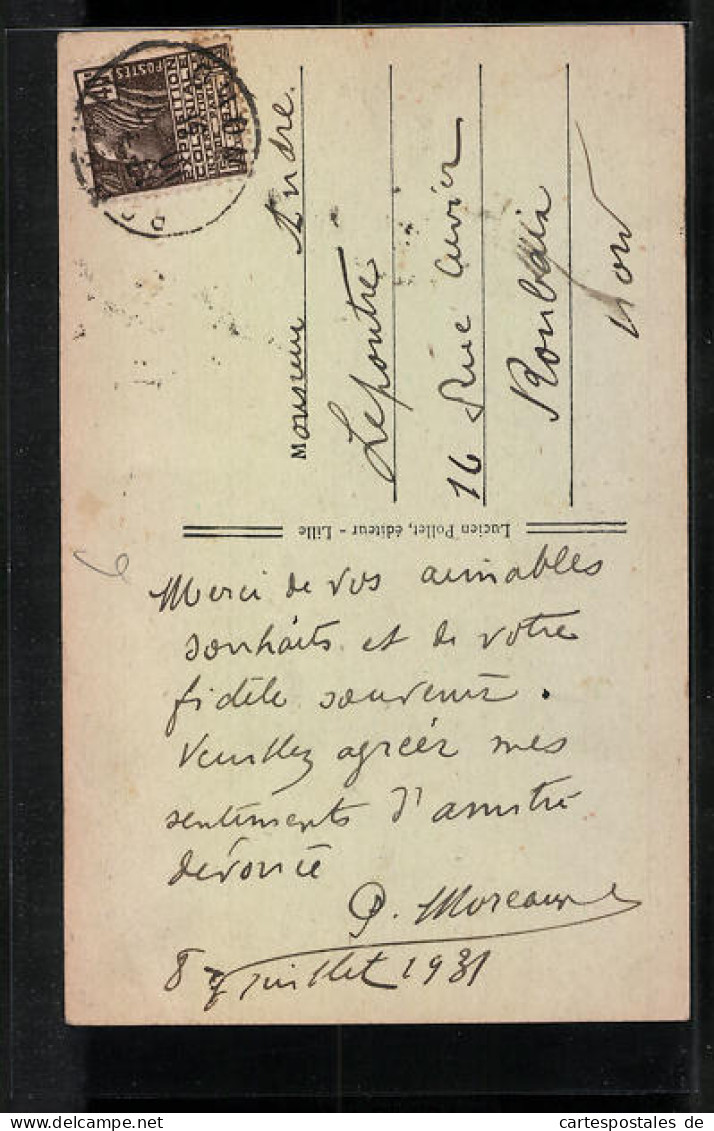 POSTES
EXPOSITION
COLONIALE
Monsieur André
Lepoutre
16 Rue Cuvier
Roubaix
Nord
Lucien Pollet, éditeur - Lille
Merci de vos aimables
souhaits et de votre
fidèle souvenir.
Veuillez agréer mes
sentiments d'amitié
dévouée
P. Moreau
8 juillet 1931
cartespostales de